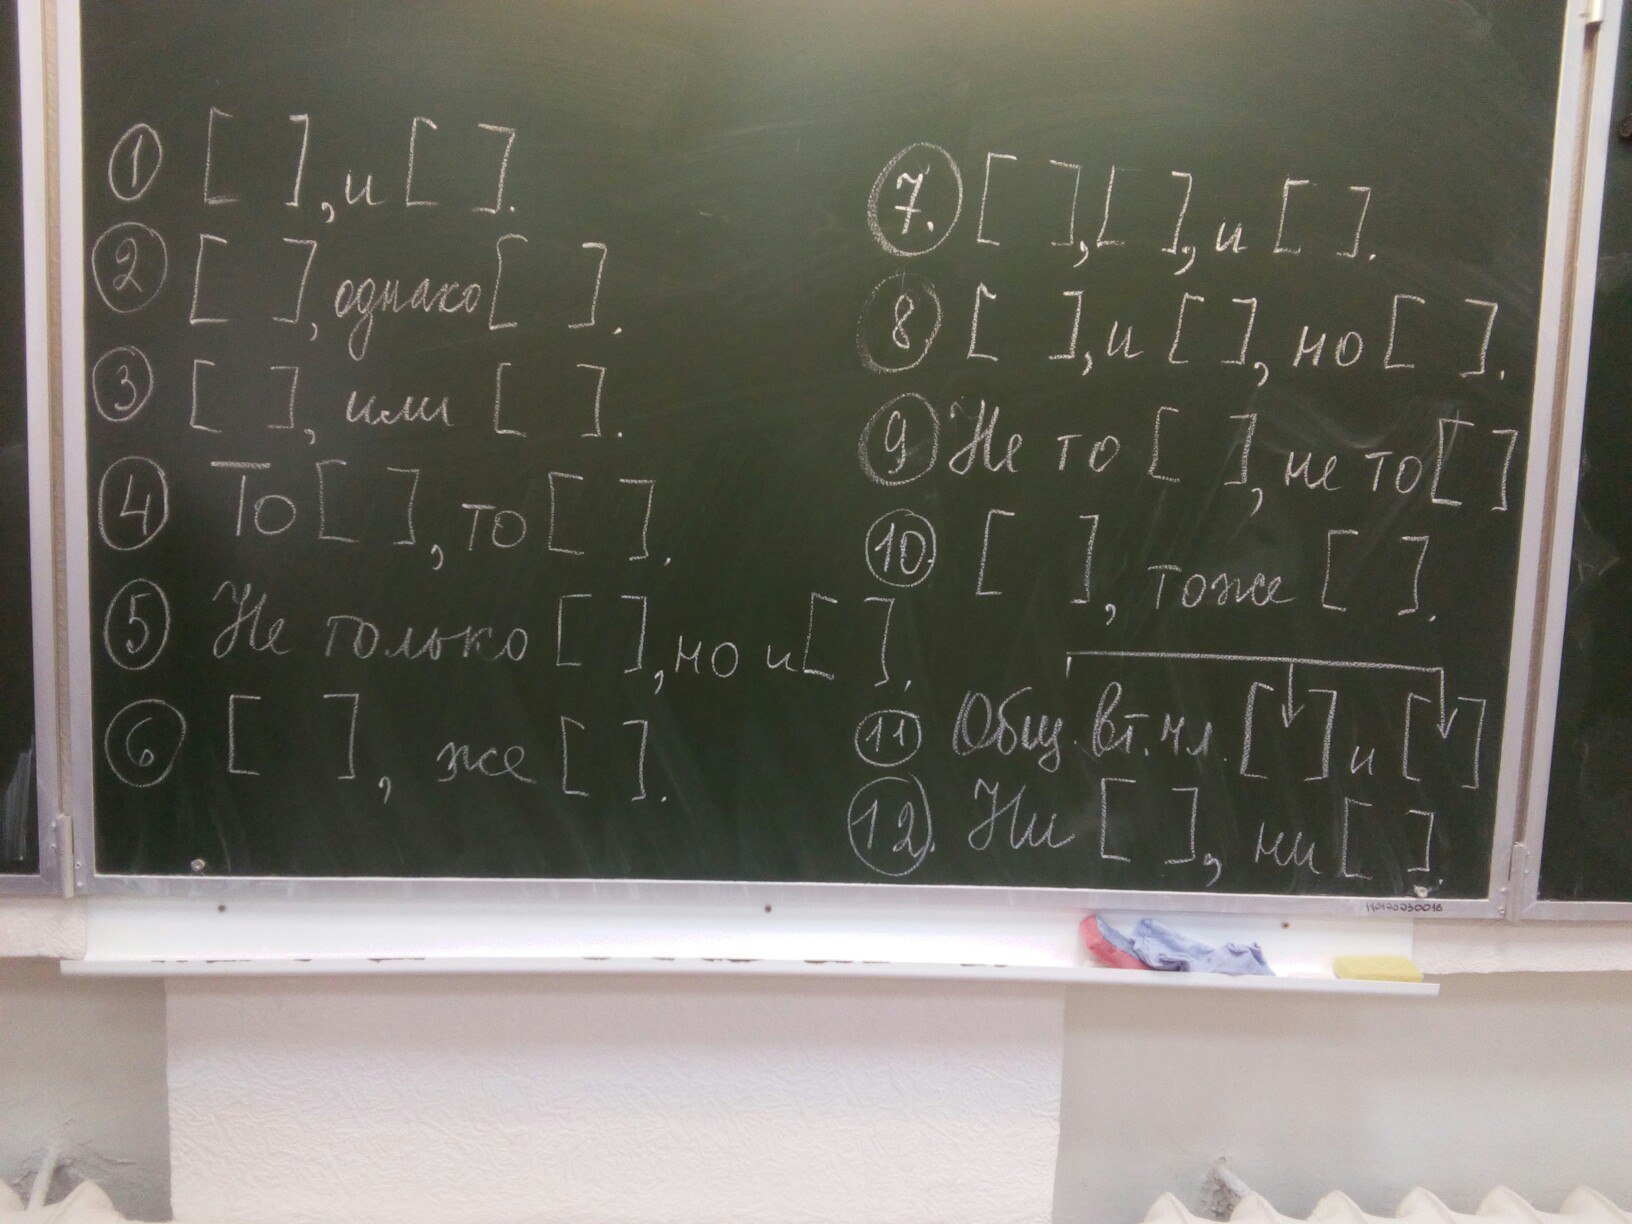 ① [ ], и [ ].
② [ ], однако [ ].
③ [ ], или [ ].
④ То [ ], то [ ].
⑤ Не только [ ], но и [ ].
⑥ [ ], же [ ].
⑦. [ ], [ ], и [ ].
⑧ [ ], и [ ], но [ ].
⑨ Не то [ ], не то [ ]
⑩. [ ], тоже [ ].
⑪ Общ. вт. чл. [ ] и [ ]
⑫. Ни [ ], ни [ ].